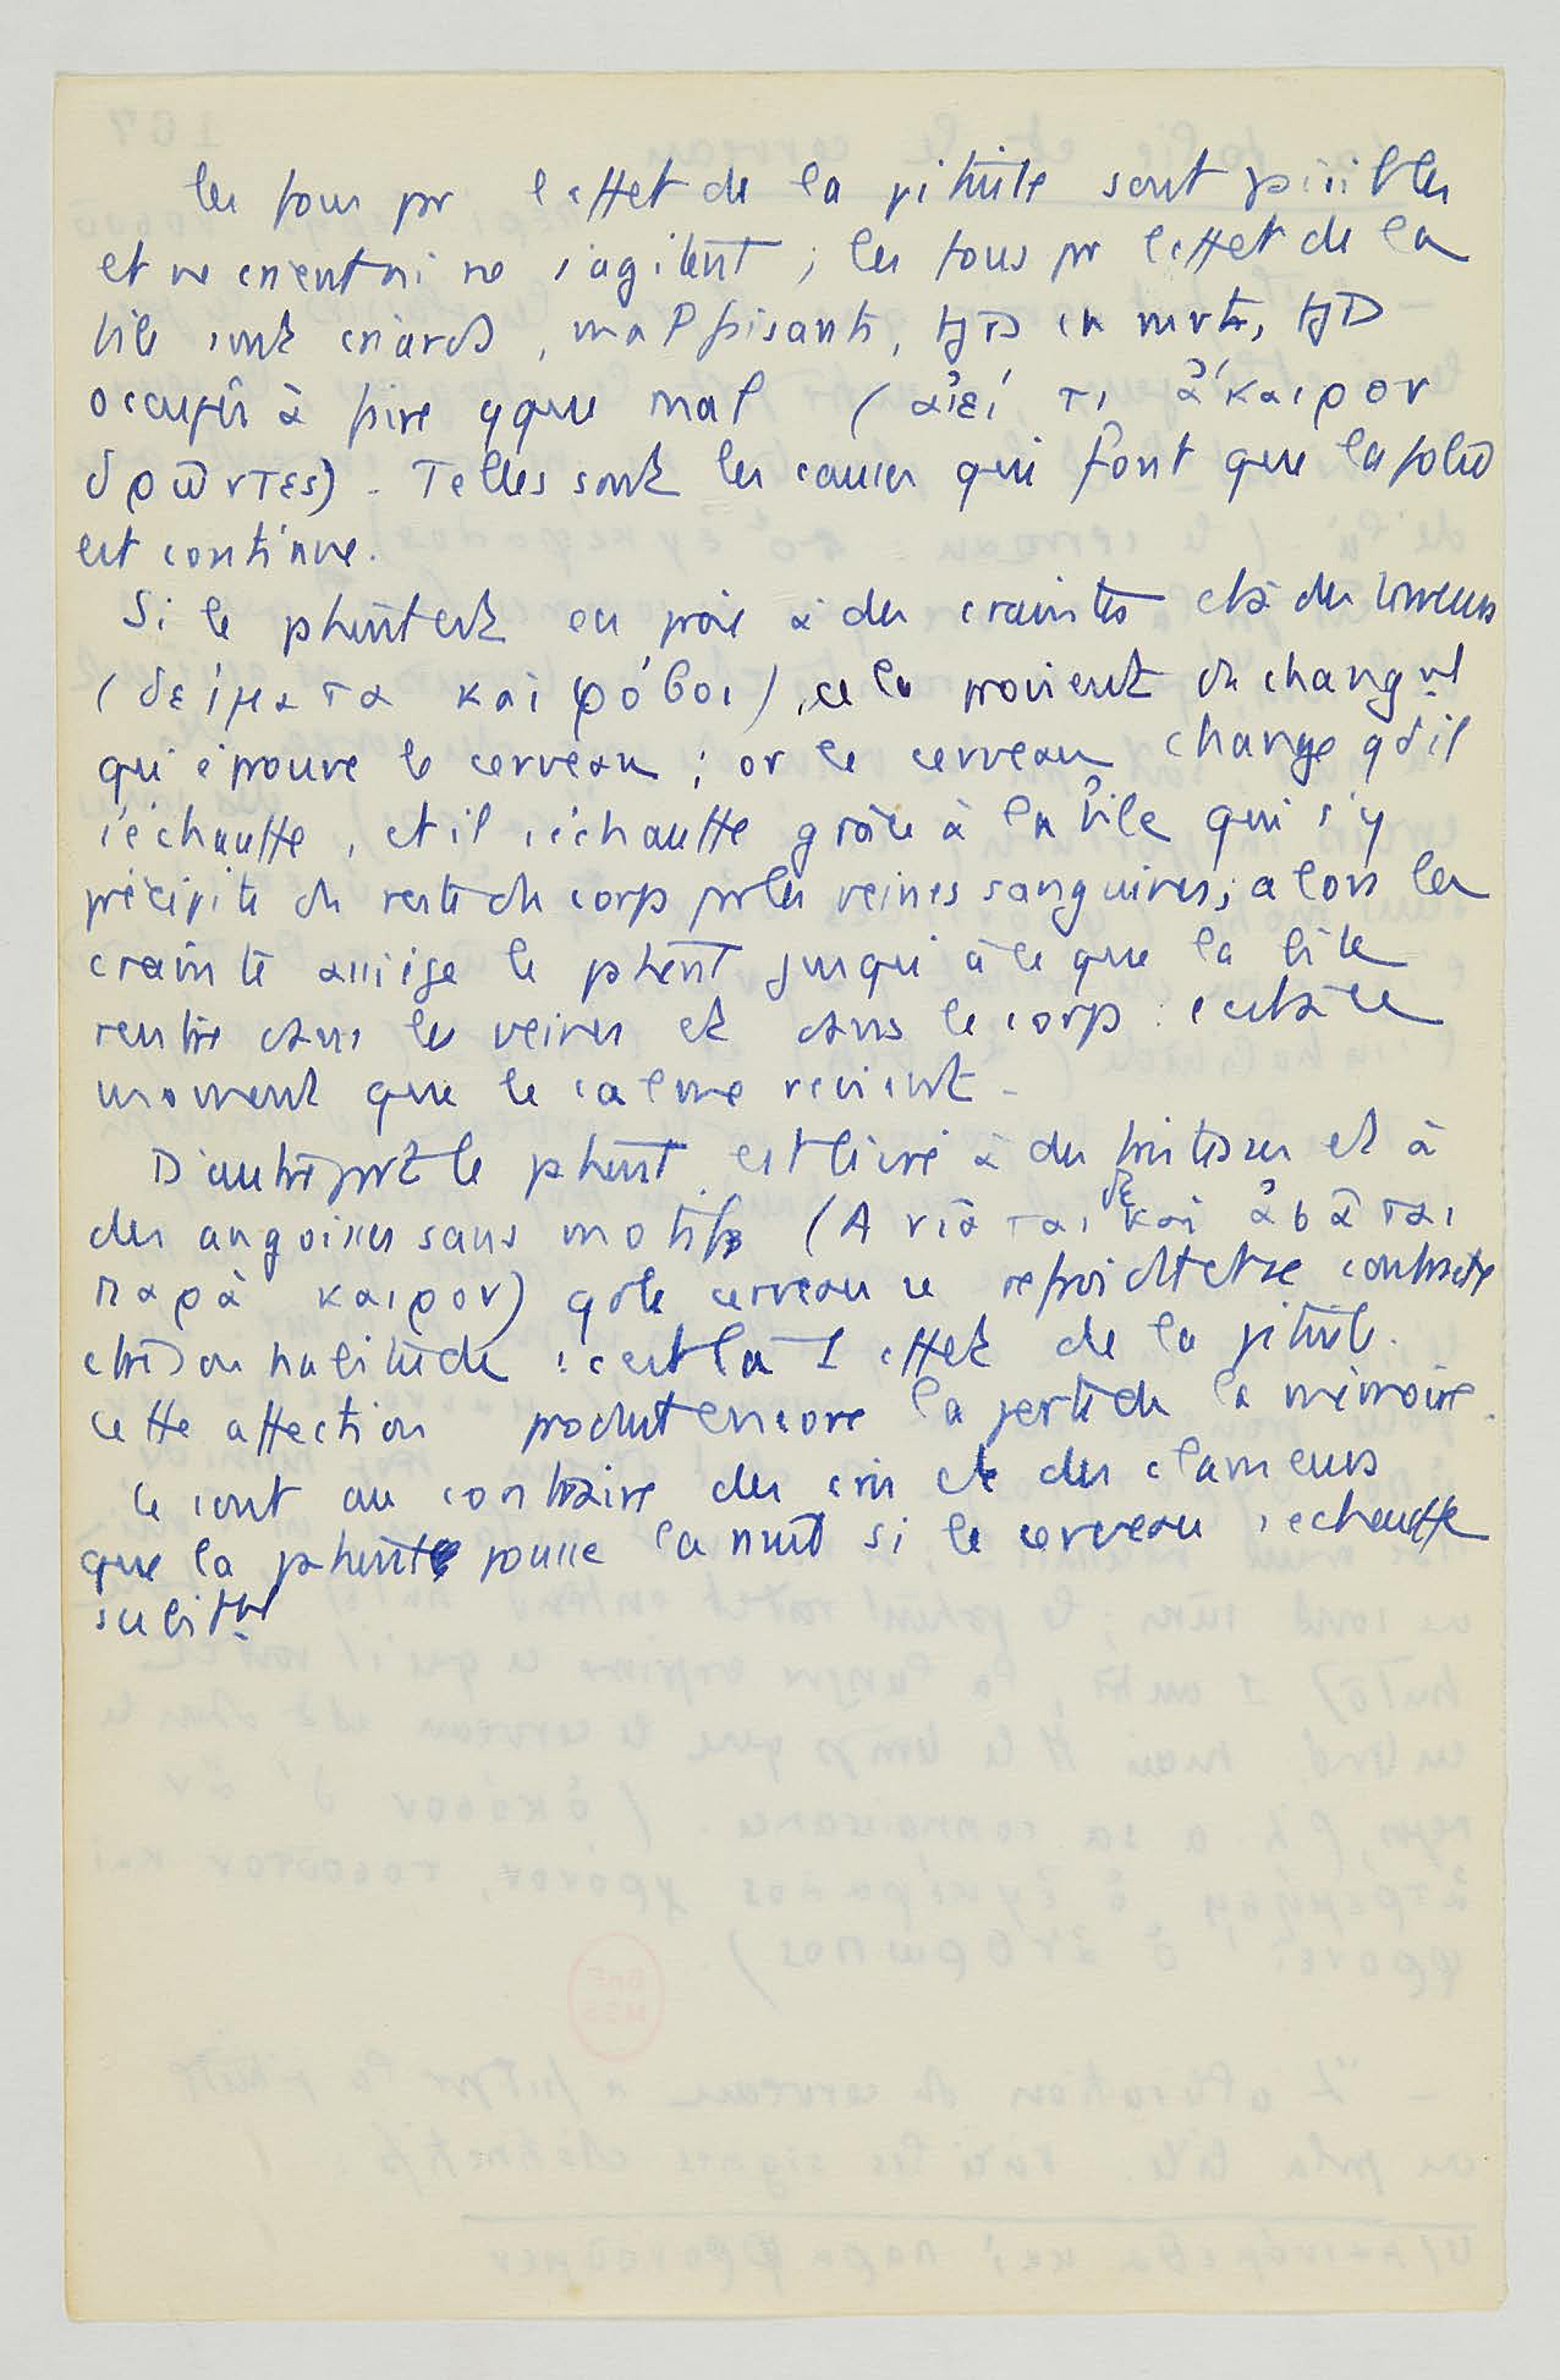 les fous pr l'effet de la pituite sont paisibles
et ne crient ni ne s'agitent ; les fous pr l'effet de la
bile sont criards, malfaisants, tjs en mvt, tjs
occupés à faire qque mal (ἀιεί τι ἄκαιρον
δρῶντες). Telles sont les causes qui font que la folie
est continue.
Si le phent est en proie à des craintes et à des terreurs
(δείματα καὶ φόβοι), cela provient du changmt
qu'éprouve le cerveau ; or le cerveau change qd il
s'échauffe, et il s'échauffe grâce à la bile qui s'y
précipite du reste du corps pr les veines sanguines ; alors la
crainte assiège le phent jusqu'à ce que la bile
rentre dans les veines et dans le corp : c'est à ce
moment que le calme revient.
D'autre part le phent est livré à des tristesses et à
des angoisses sans motifs (Ανιᾶται δὲ καὶ ἀσᾶται
παρὰ καιρον) qd le cerveau se refroidit et se contracte
ctre son habitude : c'est là 1 effet de la pituite.
cette affection produit encore la perte de la mémoire.
Ce sont au contraire des cris et des clameurs
que la phent pousse la nuit si le cerveau s'echauffe
subitmt